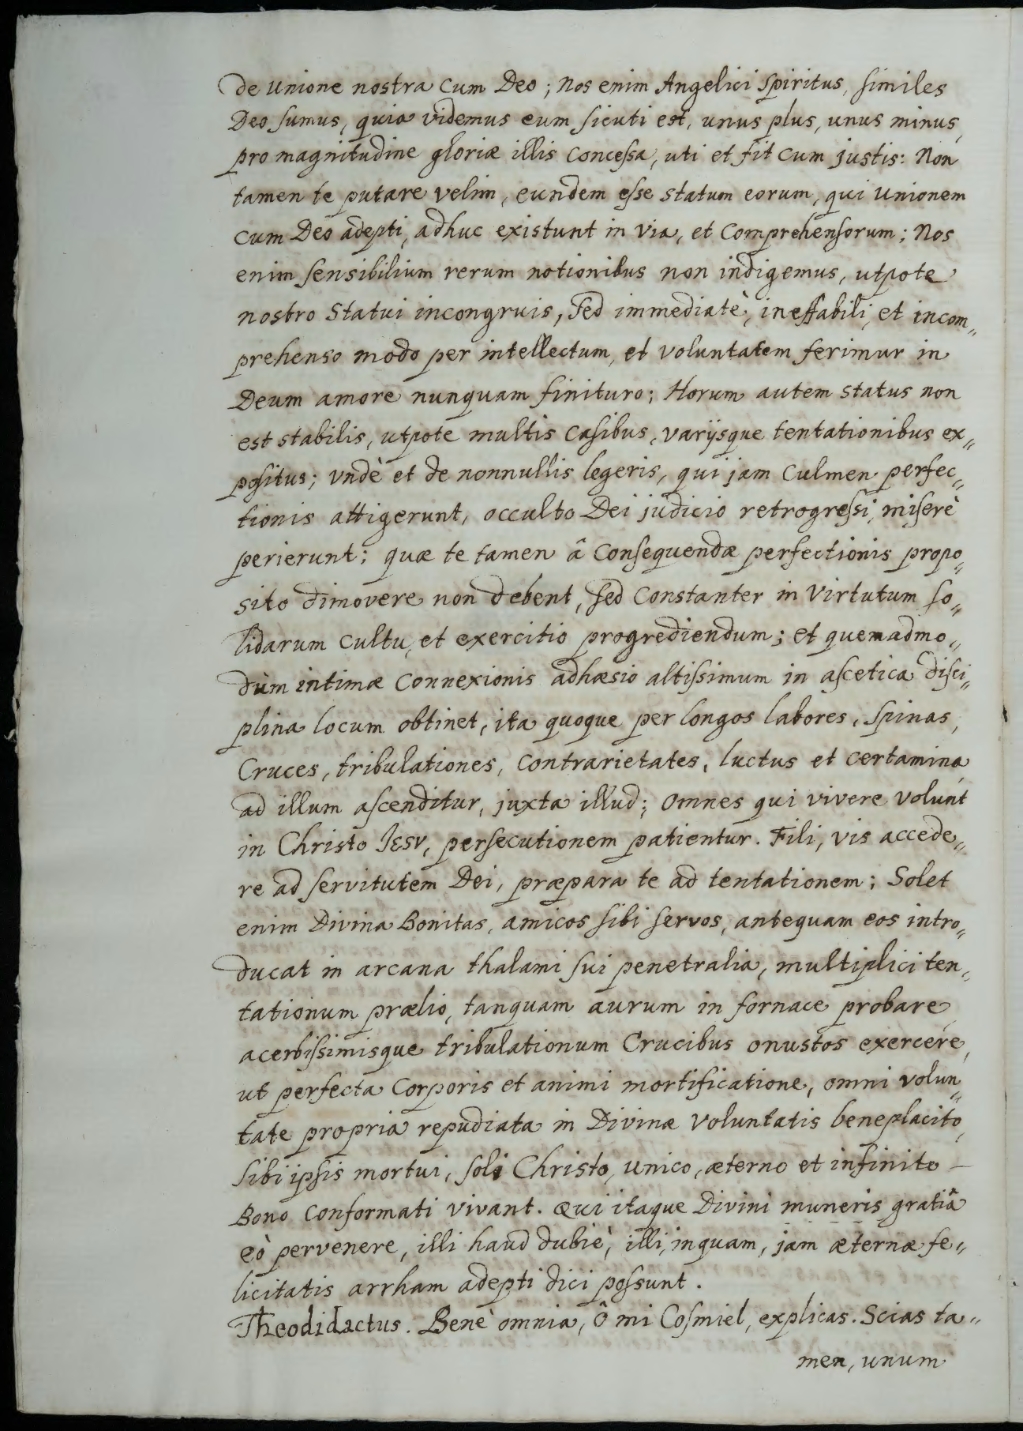 de Unione nostra cum Deo; Nos enim Angelici Spiritus, similes
Deo sumus, quia videmus eum sicuti est, unus plus, unus minus,
pro magnitudine gloriæ illis concessa, uti et fit cum justis: Non
tamen te putare velim, eundem esse statum eorum, qui Unionem
cum Deo adepti, adhuc existunt in Via, et Comprehensorum; Nos
enim sensibilium rerum notionibus non indigemus, utpote
nostro Statui incongruis, sed immediatè, ineffabili, et incom„
prehenso modo per intellectum, et voluntatem ferimur in
Deum amore nunquam finituro; Horum autem status non
est stabilis, utpote multis Casibus, varijsque tentationibus ex„
positus; Undè et de nonnullis legeris, qui jam Culmen perfec„
tionis attigerunt, occulto Dei judicio retrogressi, miserè
perierunt: quæ te tamen â Consequendæ perfectionis propo„
sito dimovere non debent, sed Constanter in Virtutum so„
lidarum cultu, et exercitio progrediendum; et quemadmo„
dùm intimæ Connexionis adhæsio altissimum in ascetica disci„
plina locum obtinet, ita quoque per longos labores, Spinas,
Cruces, tribulationes, Contrarietates, luctus et certamina,
ad illum ascenditur, juxta illud; Omnes qui vivere volunt
in Christo IESV, persecutionem patientur. Fili, vis accede„
re ad servitutem Dei, præpara te ad tentationem; Solet
enim Divina Bonitas, amicos sibi servos, antequam eos intro„
ducat in arcana thalami sui penetralia, multiplici ten„
tationum prælio, tanquam aurum in fornace probare
acerbissimisque tribulationum Crucibus onustos exercere,
ut perfecta Corporis et animi mortificatione, omni volun„
tate propria repudiata in Divinæ Voluntatis beneplacito,
sibi ipsis mortui, soli Christo, unico, æterno et infinito –
Bono Conformati vivant. Qui itaque Divini muneris gratiâ
eò pervenere, illi haud dubiè, illi, inquam, jam æternæ fe„
licitatis arrham adepti dici possunt.
Theodidactus. Benè omnia, ô mi Cosmiel, explicas. Scias ta„
men, unum